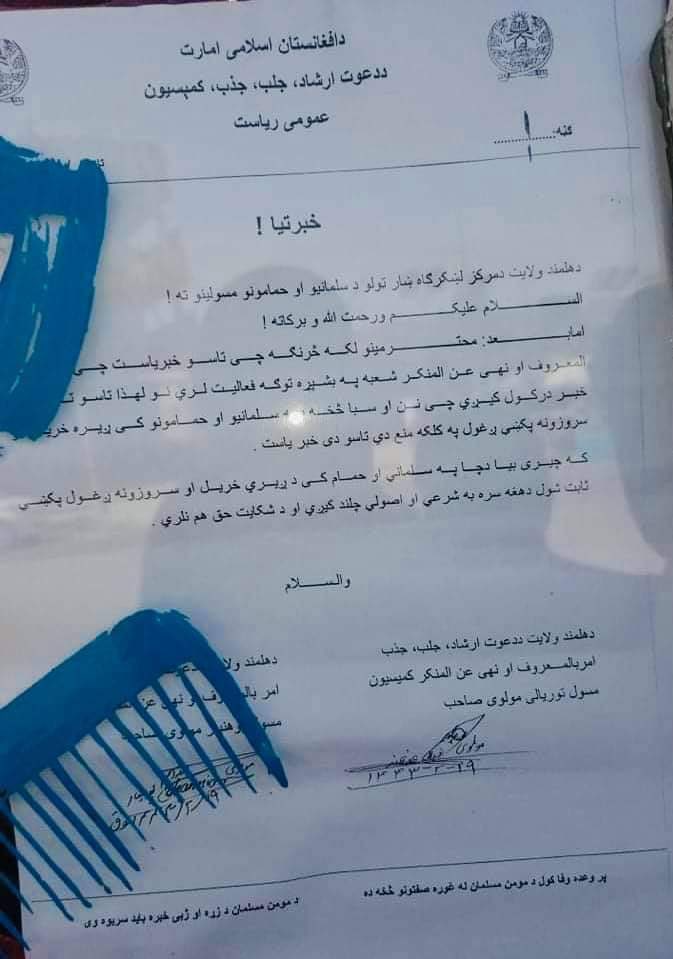 دافغانستان اسلامی امارت
ددعوت ارشاد، جلب، جذب، کمېسیون
عمومی ریاست
ګڼه ........ ۱
خبرتیا !
دهلمند ولایت دمرکز لښکرګاه ښار ټولو د سلمانیو او حمامونو مسولینو ته !
الســـلام علیکـــم ورحمت الله و برکاته !
امابـــعد: محتـــرمینو لکه څرنګه چی تاسو خبریاست چی
المعروف او نهی عن المنکر شعبه په بشپړه توګه فعالیت لري نو لهذا تاسو ته
خبر درکول کیږي چی نن او سبا څخه په سلمانیو او حمامونو کی ږیره خریل
سروزونه پکښي ږغول په کلکه منع دي تاسو دی خبر یاست .
که چیری بیا دچا په سلماني او حمام کی د ږیري خریل او سروزونه ږغول پکښي
ثابت شول دهغه سره به شرعي او اصولي چلند کیږي او د شکایت حق هم نلري .
والســـلام
دهلمند ولایت ددعوت ارشاد، جلب، جذب
امربالمـعروف او نهی عن المنکر کمیسیون
مسول توریالی مولوی صاحب
مولوی
۱۴۴۳-۲-۱۹
دهلمند ولایت
امر بالمعروف او نهی عن المنکر
مسول مولوی صاحب
مولوی
پر وعده وفا کول د مومن مسلمان له غوره صفتونو څخه ده
د مومن مسلمان د زړه او ژبی خبره باید سریوه وی